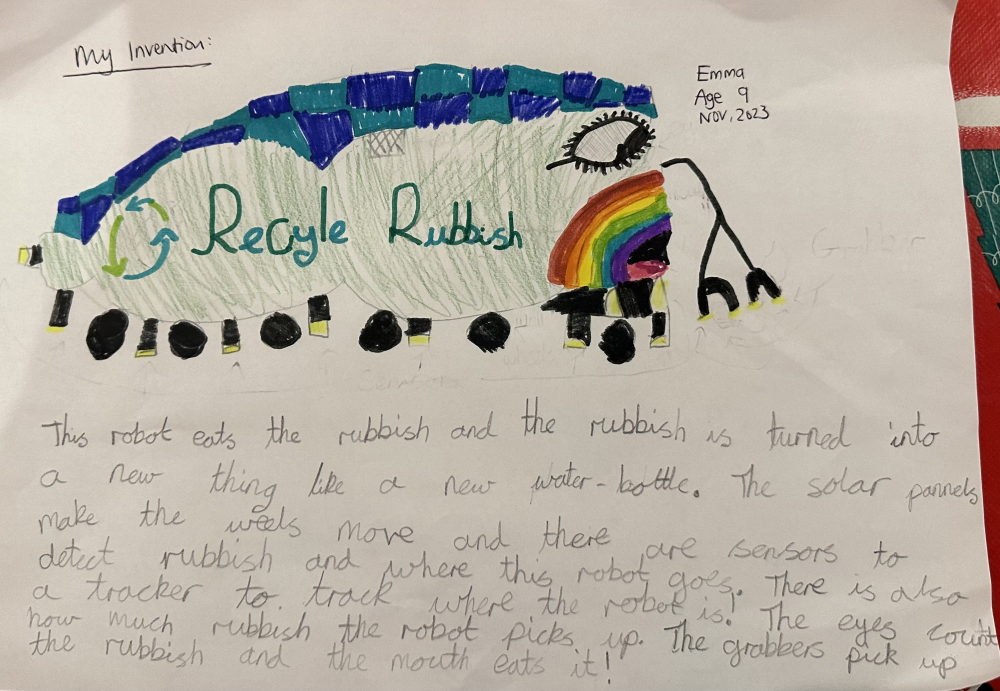 My Invention:
Emma
Age 9
Nov, 2023
Recyle Rubbish
This robot eats the rubbish and the rubbish is turned into
a new thing like a new water-bottle. The solar pannels
make the weels move and there are sensors to
detect rubbish and where this robot goes. There is also
a tracker to track where the robot is! The eyes count
how much rubbish the robot picks up. The grabbers pick up
the rubbish and the mouth eats it!